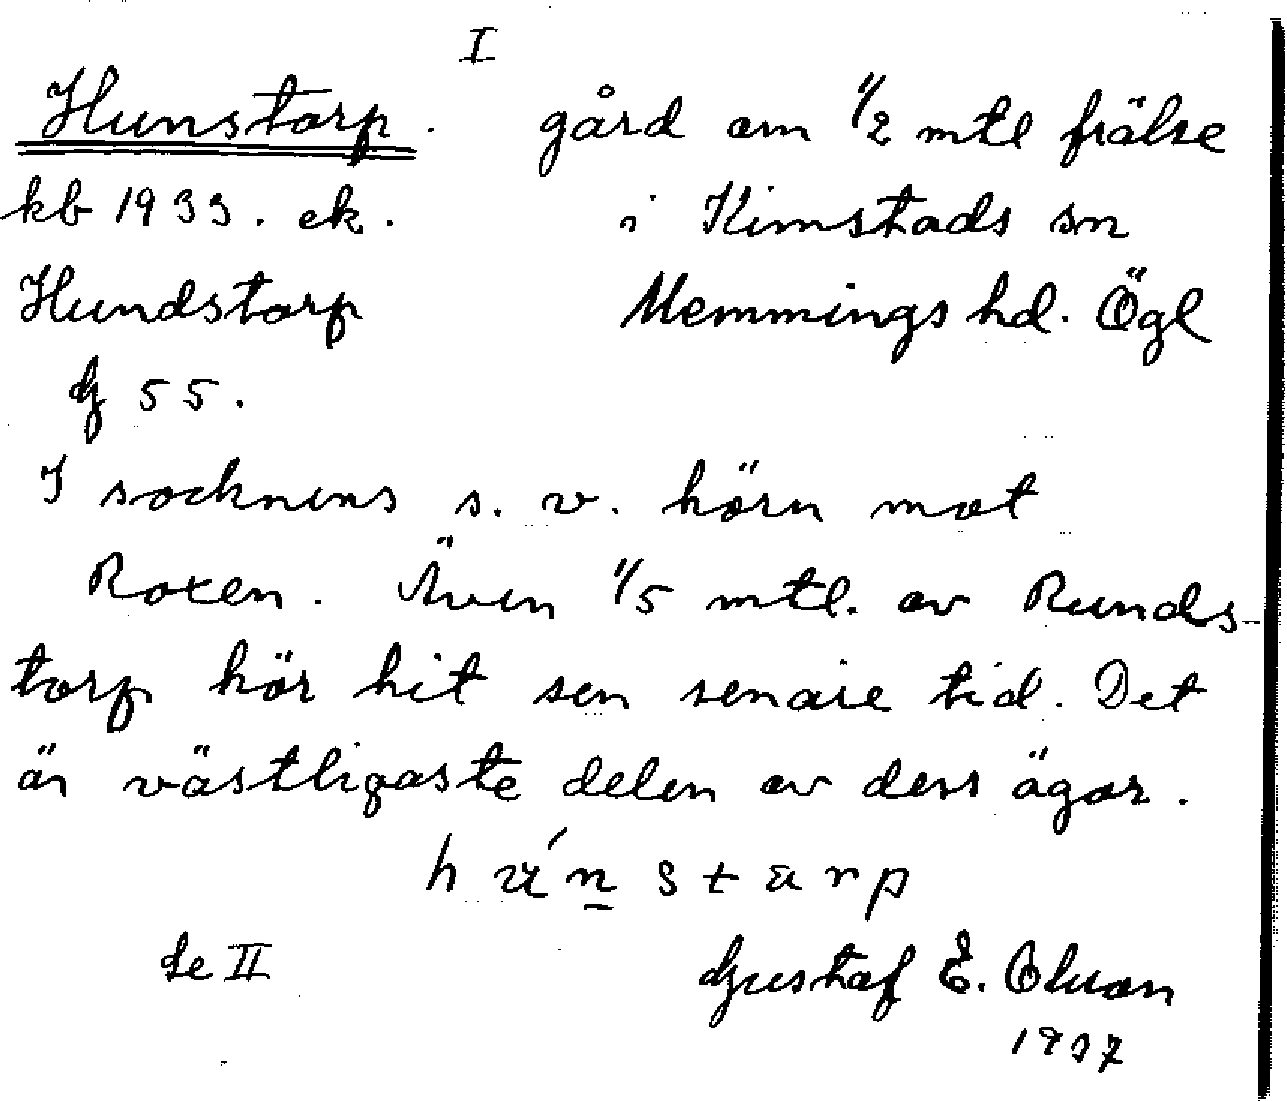 I
Hunstorp. gård om 1/2 mtl frälse
kb 1933. ek. i Kimstads sn
Hundstorp Memmings hd. Ögl
G 55.
I socknens s. v. hörn mot
Roxen. Även 1/5 mtl. av Runds-
torp hör hit sen senare tid. Det
är västligaste delen av dess ägor.
Se II Gustaf E. Olsson
1937